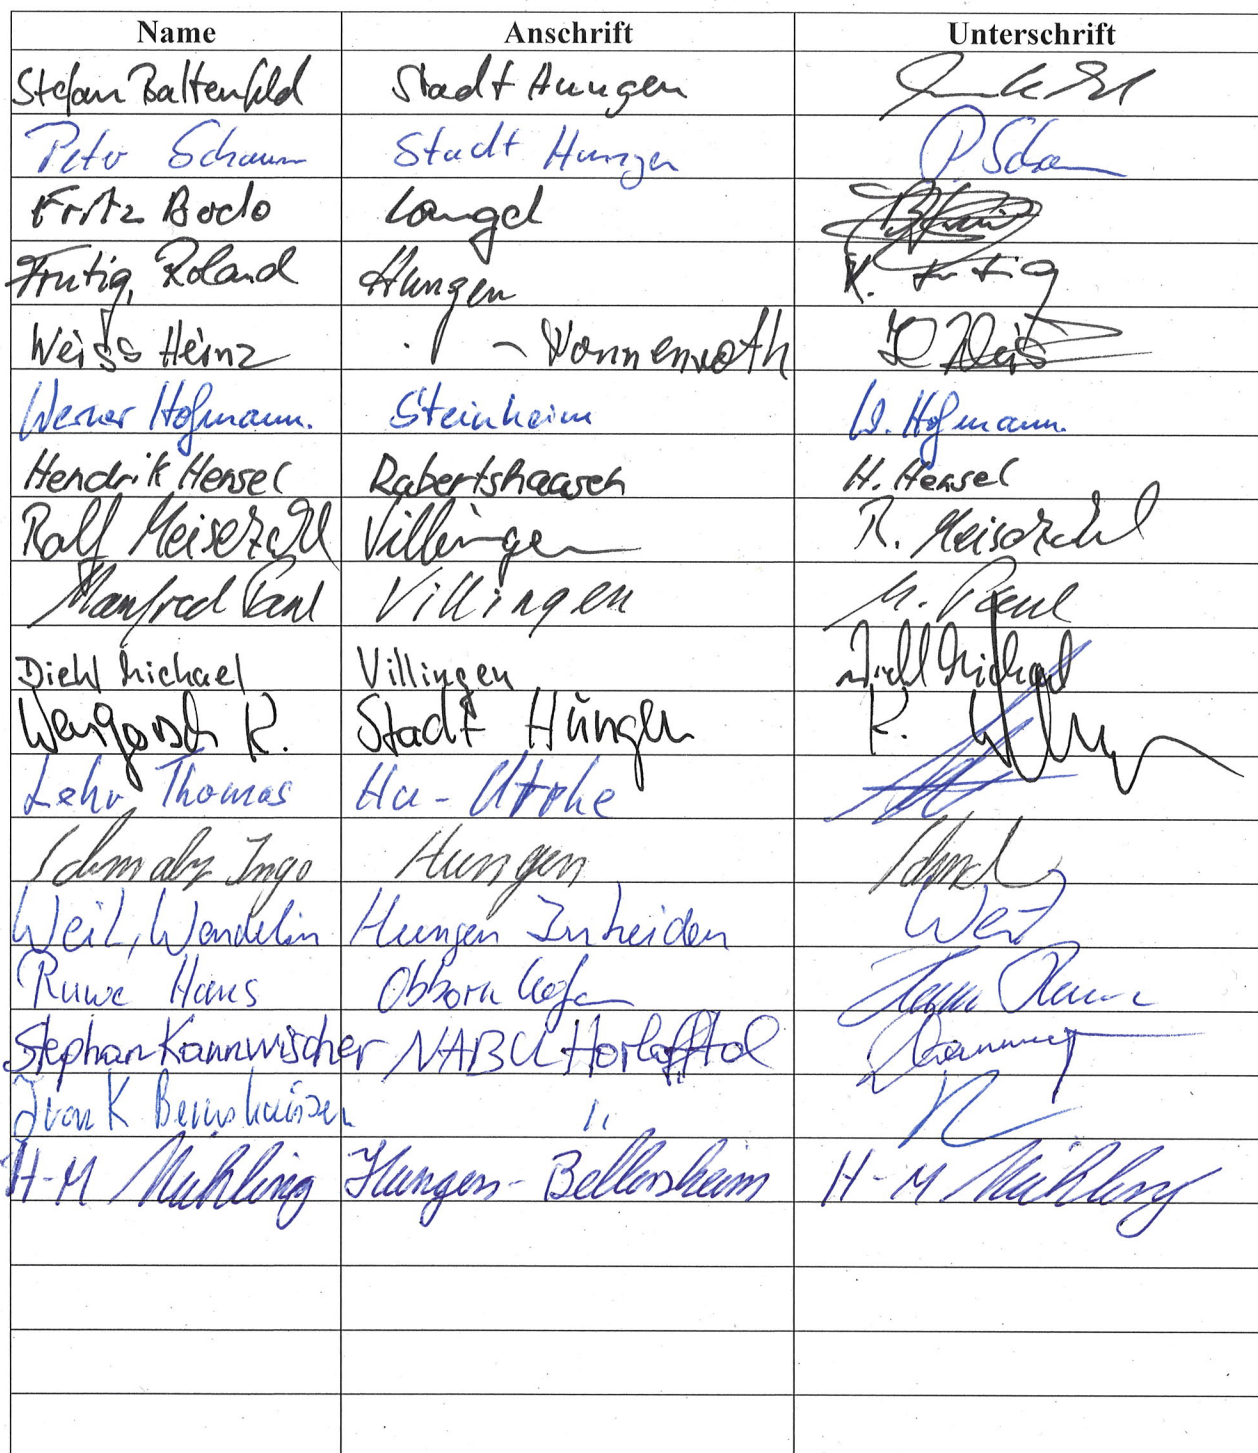 Name Anschrift Unterschrift
Stefan Baltenfeld Stadt Hungen
Peter Schaum Stadt Hungen P Scha
Fritz Bodo Langd
Frutig, Roland Hungen R. Frutig
Weiss Heinz - Nonnenroth H Weiß
Werner Hofmann. Steinheim W. Hofmann.
Hendrik Hensel Rabertshausen H. Hensel
Ralf Meiserzahl Villingen R. Meiserzahl
Manfred Paul Villingen M. Paul
Diehl Michael Villingen Diehl Michael
K. Stadt Hungen K.
Lehr Thomas Hu-Utphe
Schmalz Ingo Hungen
Weil, Wendelin Hungen Inheiden Weil
Ruwe Hans Obbornhofen Hans Ruwe
Stephan Kannwischer NABU Horlofftal
Frank Bernshausen "
H-M Mühling Hungen-Bellersheim H-M Mühling